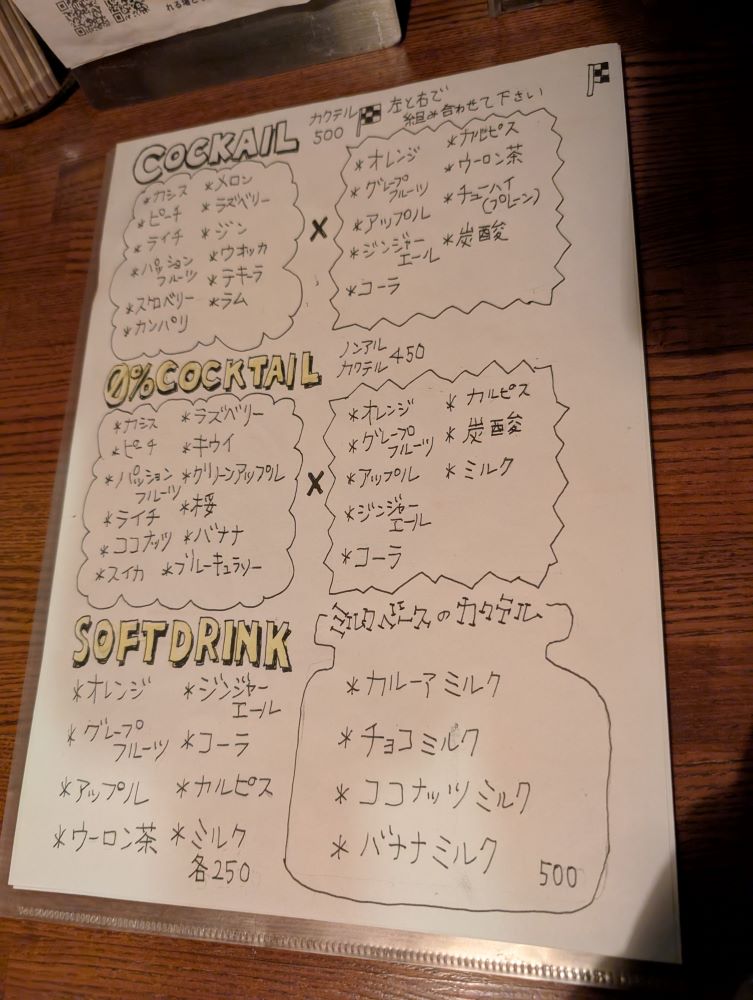 れる場と
COCKAIL
カクテル
500
左と右で
組み合わせて下さい
*カシス
*ピーチ
*ライチ
*パッション
フルーツ
*ストロベリー
*カンパリ
*メロン
*ラズベリー
*ジン
*ウオッカ
*テキーラ
*ラム
×
*オレンジ
*グレープ
フルーツ
*アップル
*ジンジャー
エール
*コーラ
*カルピス
*ウーロン茶
*チューハイ
(プレーン)
*炭酸
0%COCKTAIL
ノンアル
カクテル 450
*カシス
*ピーチ
*パッション
フルーツ
*ライチ
*ココナッツ
*スイカ
*ラズベリー
*キウイ
*グリーンアップル
*桜
*バナナ
*ブルーキュラソー
×
*オレンジ
*グレープ
フルーツ
*アップル
*ジンジャー
エール
*コーラ
*カルピス
*炭酸
*ミルク
SOFTDRINK
*オレンジ
*グレープ
フルーツ
*アップル
*ウーロン茶
*ジンジャー
エール
*コーラ
*カルピス
*ミルク
各250
ミルクベースのカクテル
*カルーアミルク
*チョコミルク
*ココナッツミルク
*バナナミルク
500